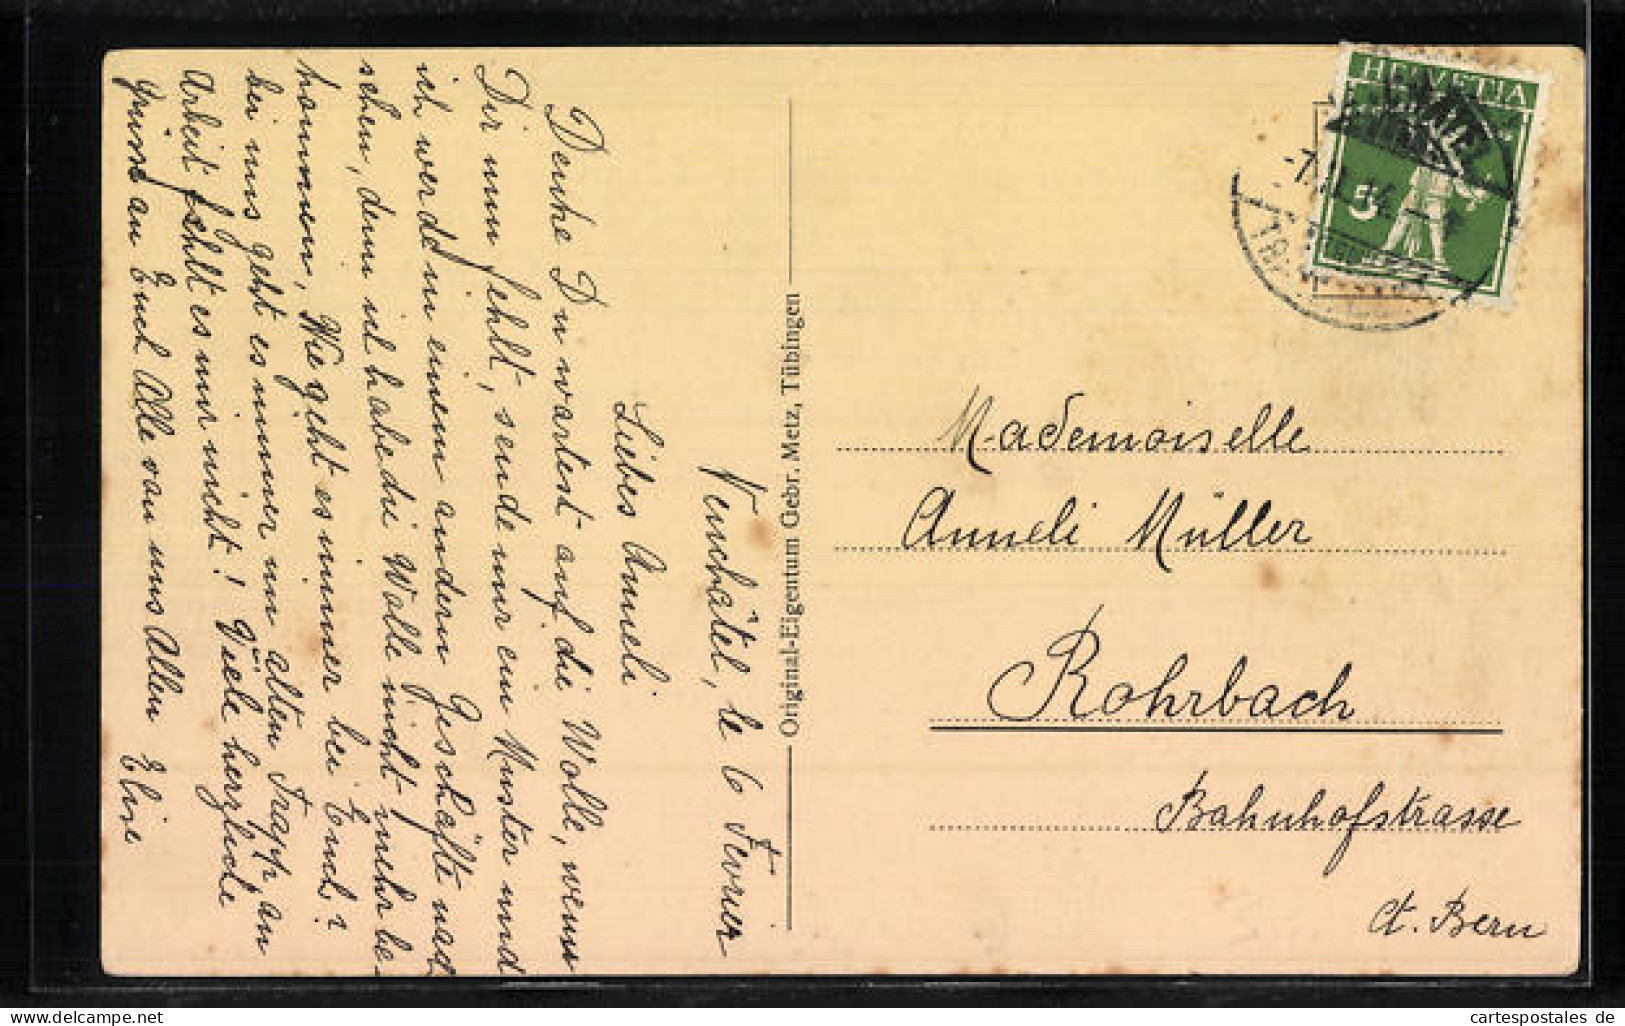 Neuchâtel, le 6 Fevrier
Liebes Anneli
Denke Du wartest auf die Wolle, wenn
Dir nun fehlt, sende mir ein Muster und
ich werde in einem andern Geschäfte nach
sehen, denn ich habe die Wolle nicht mehr be-
kommen. Wie geht es immer bei Euch?
bei uns geht es immer im alten Trapp, an
Arbeit fehlt es mir nicht! Viele herzliche
Grüsse an Euch Alle von uns Allen Elise
Original-Eigentum Gebr. Metz, Tübingen
HELVETIA
5
Mademoiselle
Anneli Müller
Rohrbach
Bahnhofstrasse
Ct. Bern
cartespostales de